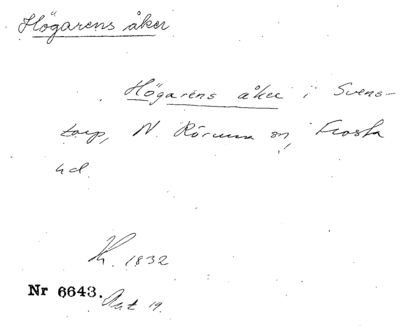 Högarens åker
Högarens åker i Svens-
torp, N. Rörum sn, Frosta
hd.
Kr. 1832
Nr 6643. Akt 19.